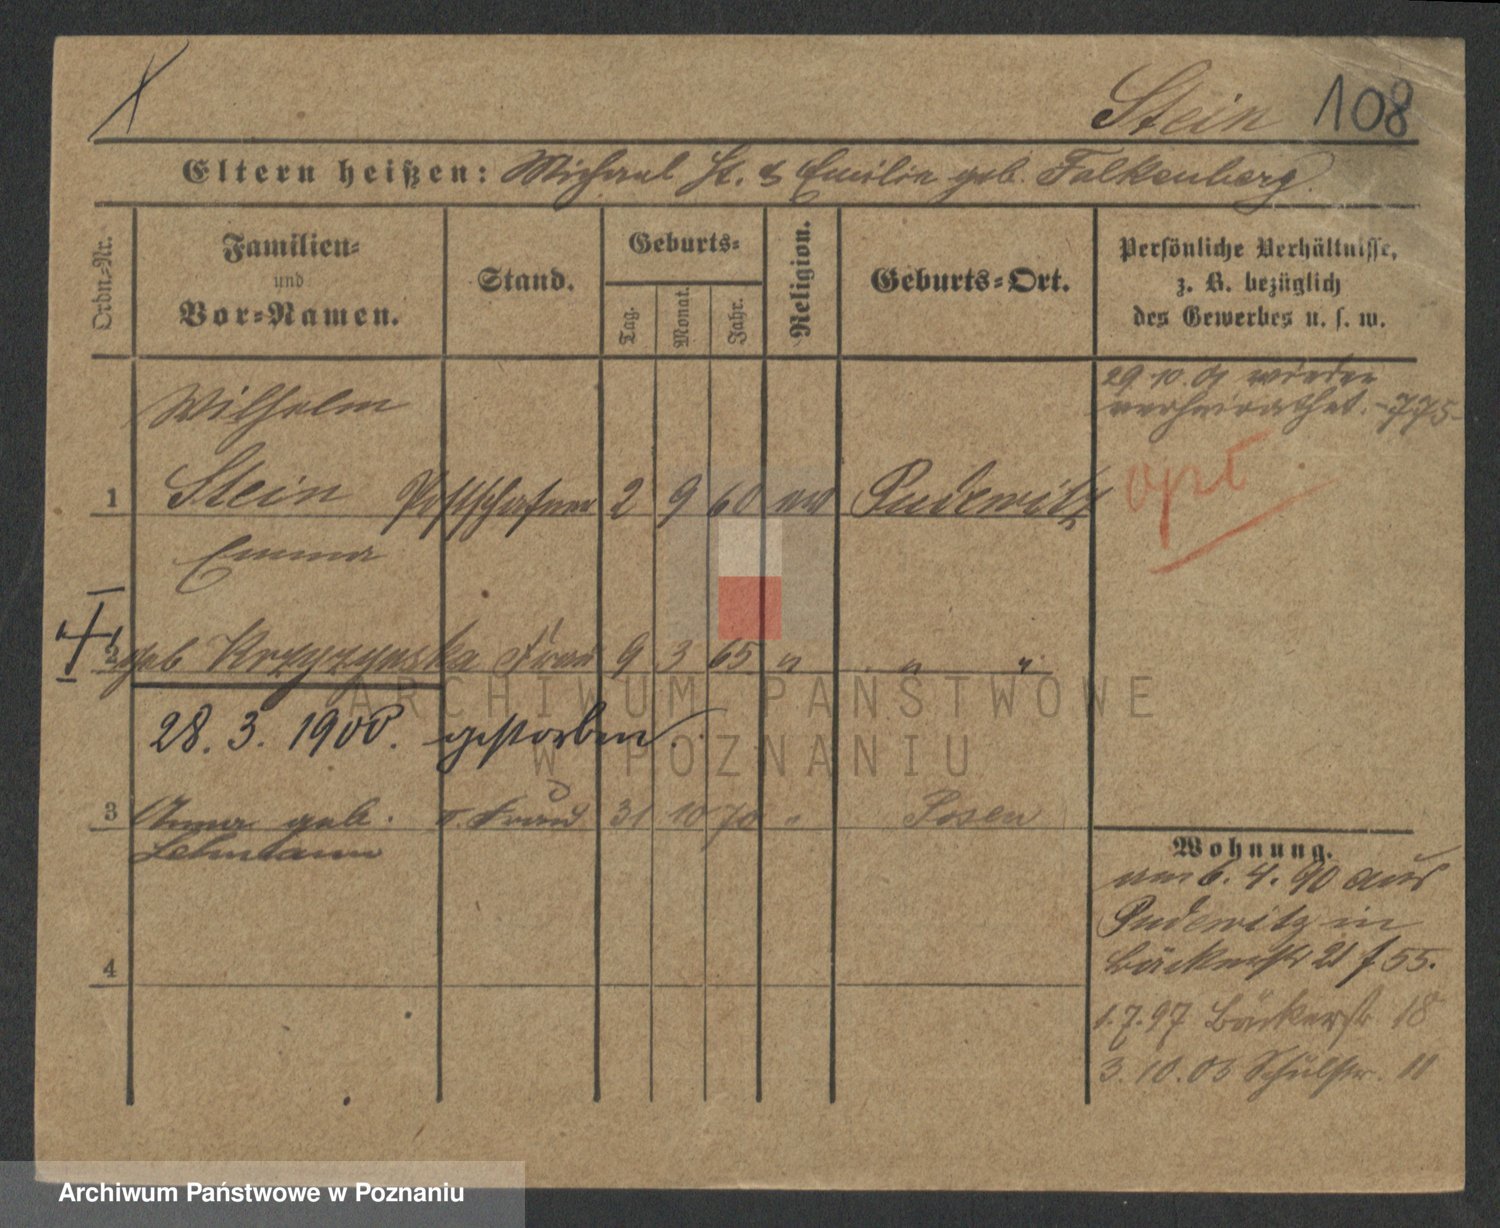 Stein 108
Eltern heißen: Michael St. & Emilie geb. Falkenberg.
Ordn.-Nr.
Familien-
und
Vor-Namen.
Stand.
Geburts-
Tag.
Monat.
Jahr.
Religion.
Geburts-Ort.
Persönliche Verhältnisse,
z. B. bezüglich
des Gewerbes u. s. w.
29.10.01 wieder
verheirathet. -775-
Wilhelm
1 Stein Postschaffner 2 9 60 Pudewitz
Emma
2 geb Krzyzynska Frau 9 3 65 " " "
28. 3. 1900. gestorben.
3 Anna geb. II. Frau 31 10 70 " Posen
Lehmann
4
Wohnung.
am 6. 4. 90 aus
Pudewitz in
Bäckerstr 21 f 55.
1.7.97 Bäckerstr 18
3.10.03 Schulstr. 11
ARCHIWUM PAŃSTWOWE
W POZNANIU
Archiwum Państwowe w Poznaniu